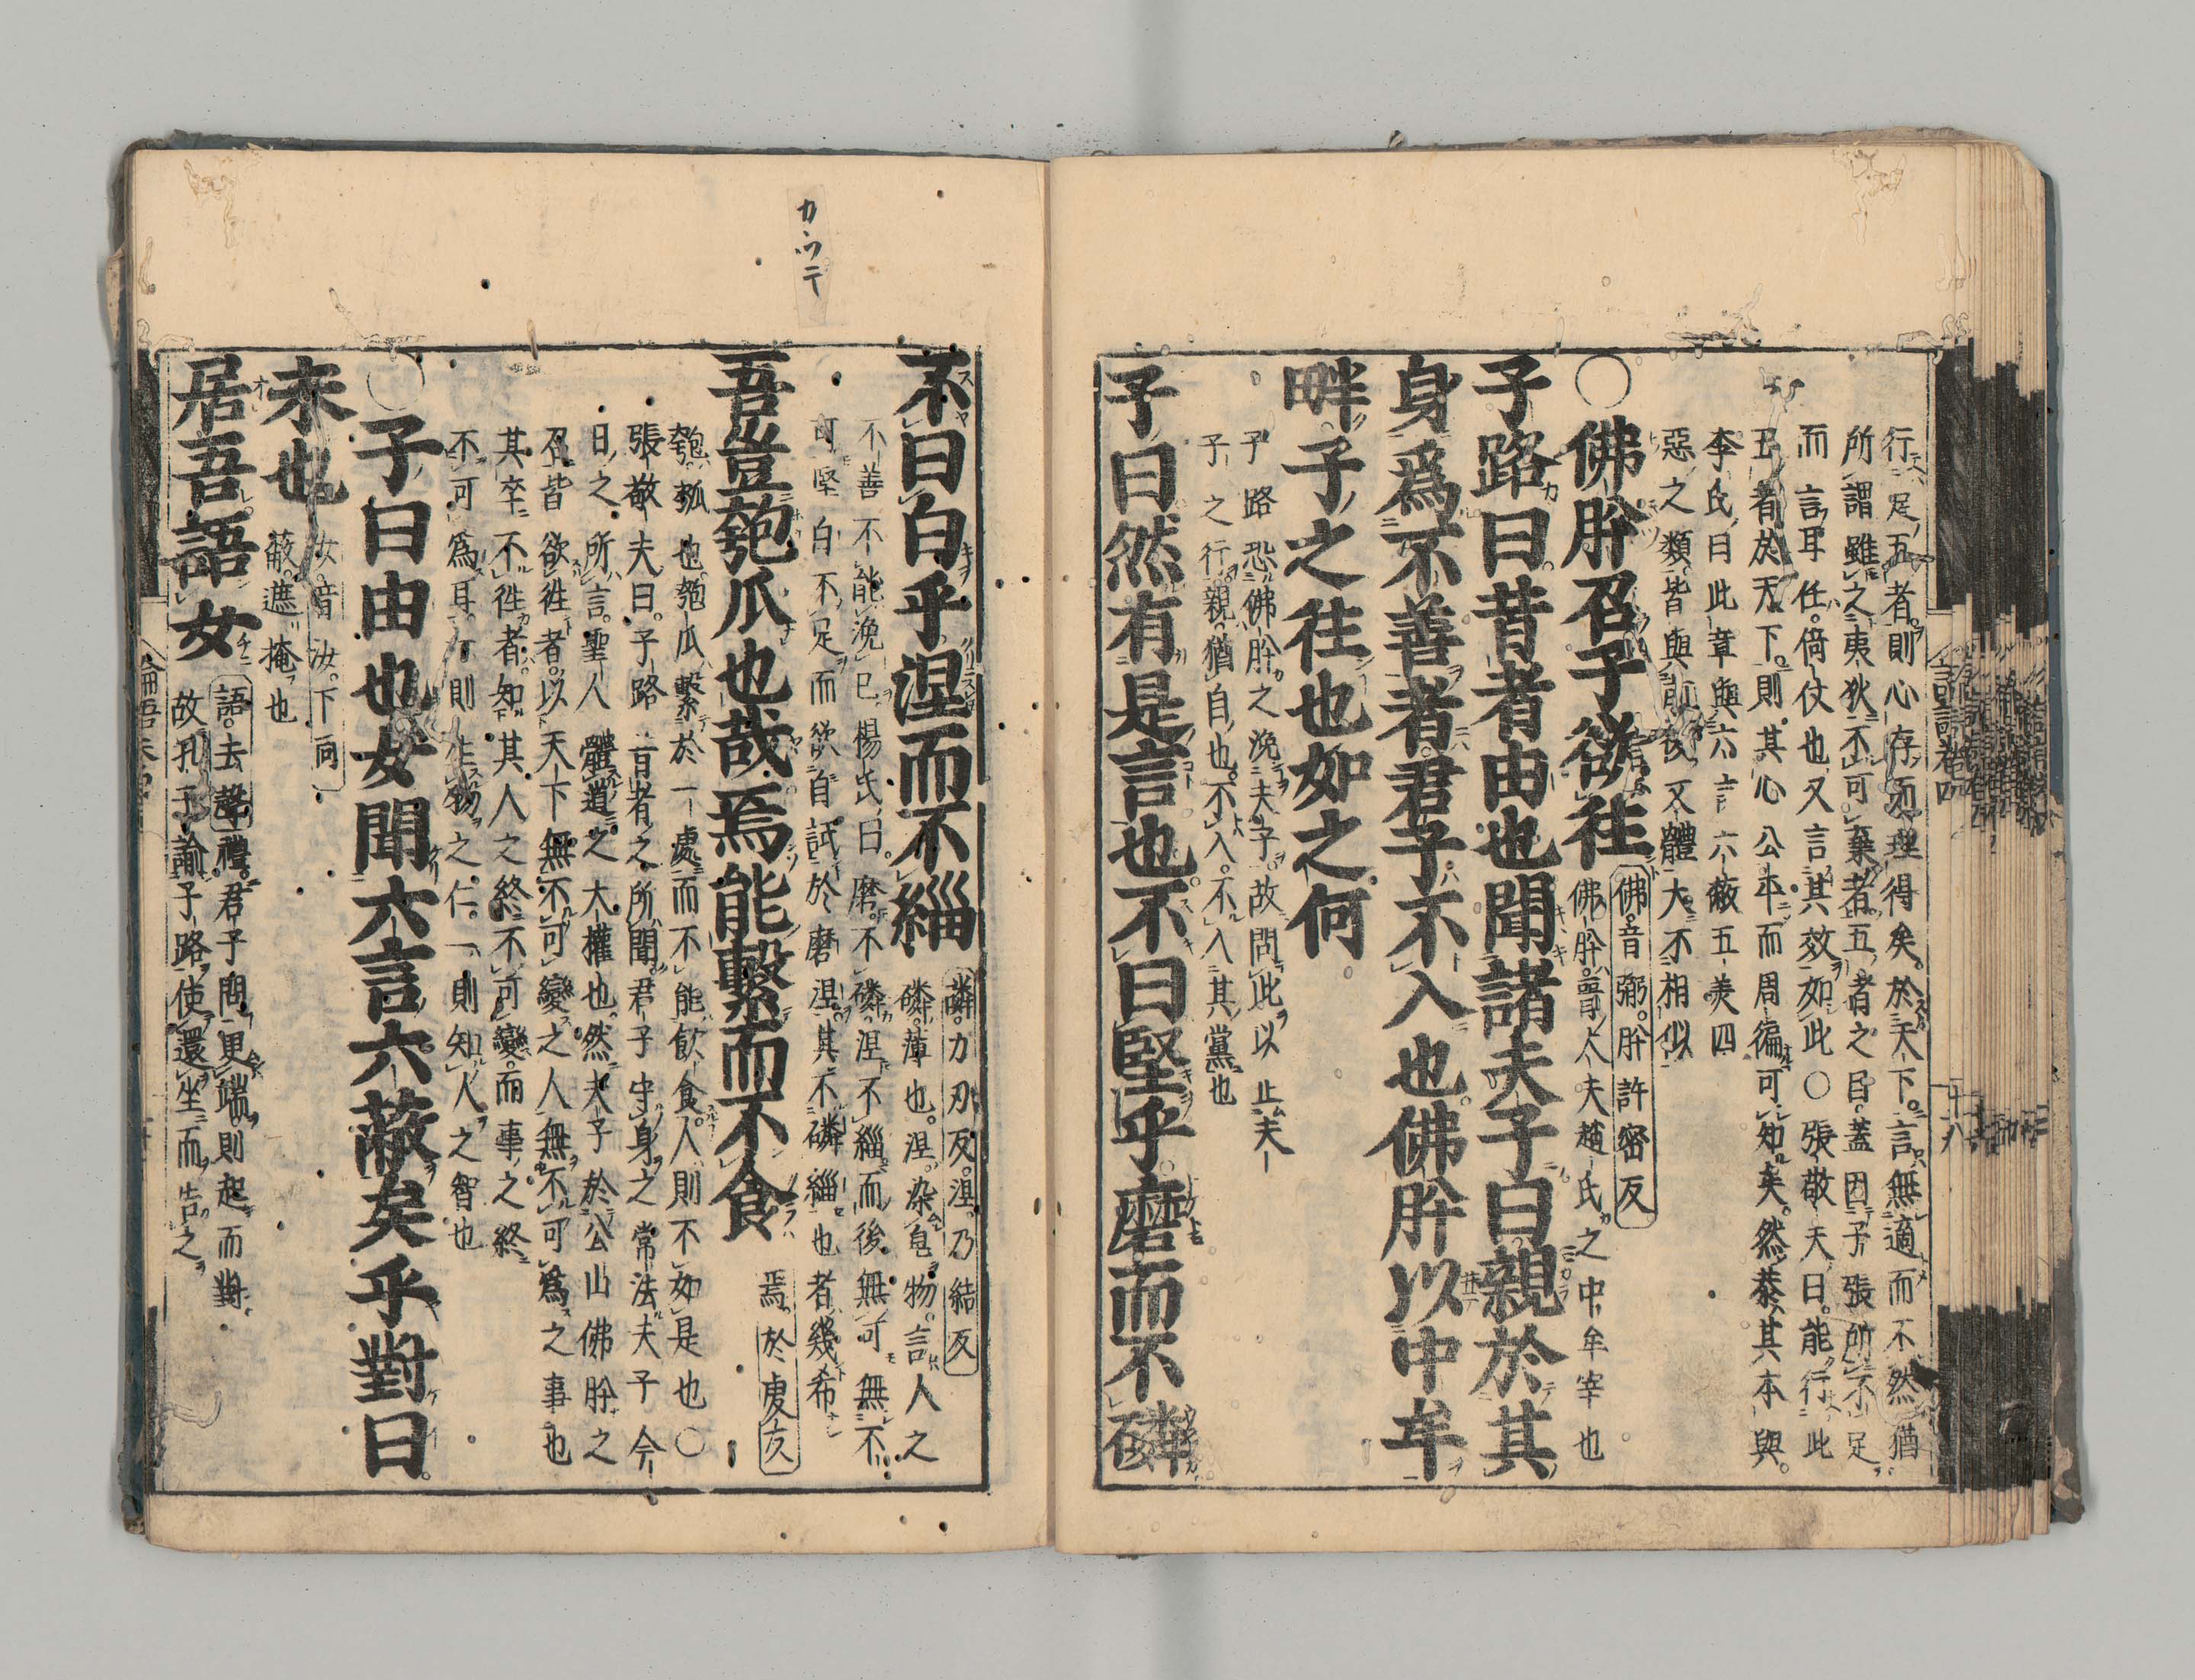 行是五者則心存而理得矣於天下言無適而不然猶
所謂雖之夷狄不可棄者五者之目蓋因子張所不足
而言耳任倚仗也又言其效如此○張敬夫曰能行此
五者於天下則其心公平而周徧可知矣然恭其本與
李氏曰此章與六言六蔽五美四
惡之類皆與前後文體大不相似
○佛肸召子欲往
佛音弼肸許密反
佛肸晉大夫趙氏之中牟宰也
子路曰昔者由也聞諸夫子曰親於其
身爲不善者君子不入也佛肸以中牟
畔子之往也如之何
子路恐佛肸之浼夫子故問此以止夫
子之行親猶自也不入不入其黨也
子曰然有是言也不曰堅乎磨而不磷
不曰白乎涅而不緇
磷力刃反涅乃結反
磷薄也涅染皂物言人之
不善不能浼已楊氏曰磨不磷涅不緇而後無可無不
可堅白不足而欲自試於磨涅其不磷緇也者幾希
吾豈匏瓜也哉焉能繫而不食
焉於虔反
匏瓠也匏瓜繫於一處而不能飲食人則不如是也○
張敬夫曰子路昔者之所聞君子守身之常法夫子今
日之所言聖人體道之大權也然夫子於公山佛肸之
召皆欲往者以天下無不可變之人無不可爲之事也
其卒不往者知其人之終不可變而事之終
不可爲耳一則生物之仁一則知人之智也
○子曰由也女聞六言六蔽矣乎對曰
未也
女音汝下同
蔽遮掩也
居吾語女
語去聲禮君子問更端則起而對
故孔子諭子路使還坐而告之
カツテ